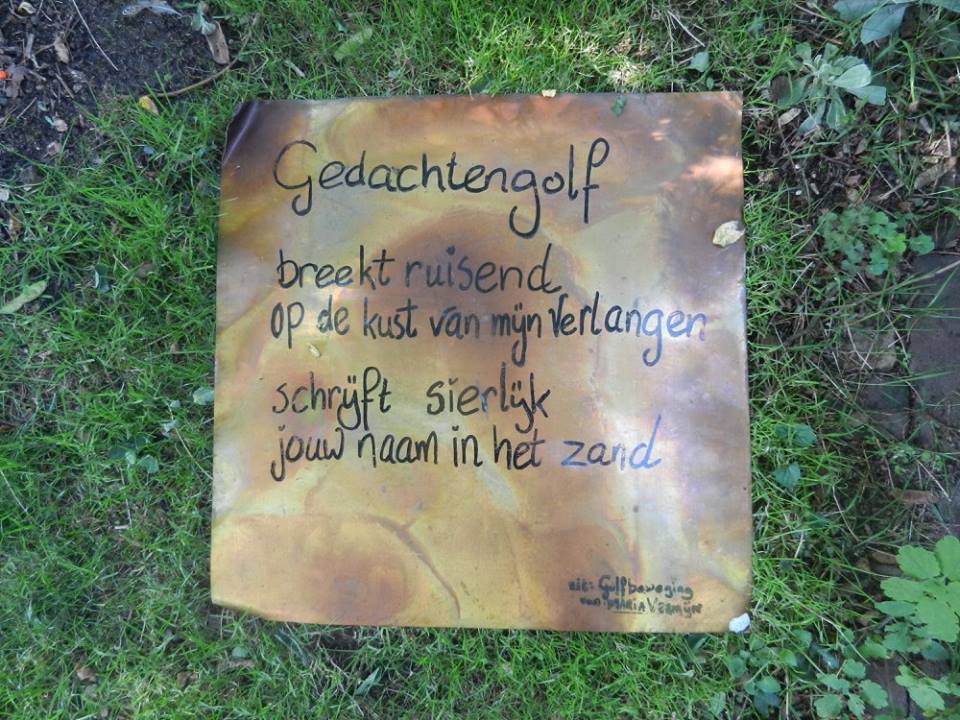 Gedachtengolf
breekt ruisend
op de kust van mijn verlangen
schrijft sierlijk
jouw naam in het zand
uit: Golfbeweging
van: MARIA